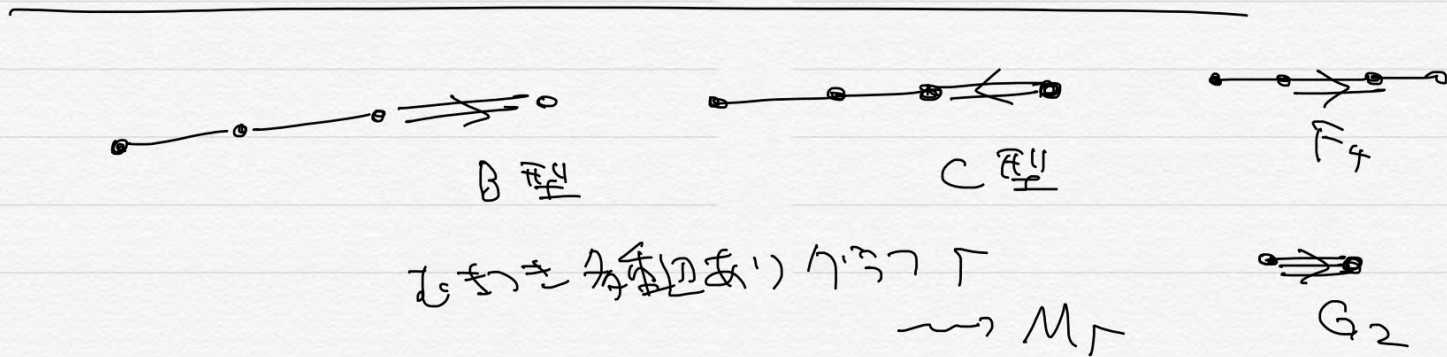 B型
C型
F4
むきつき多重辺ありグラフ Γ
⇝ MΓ
G2